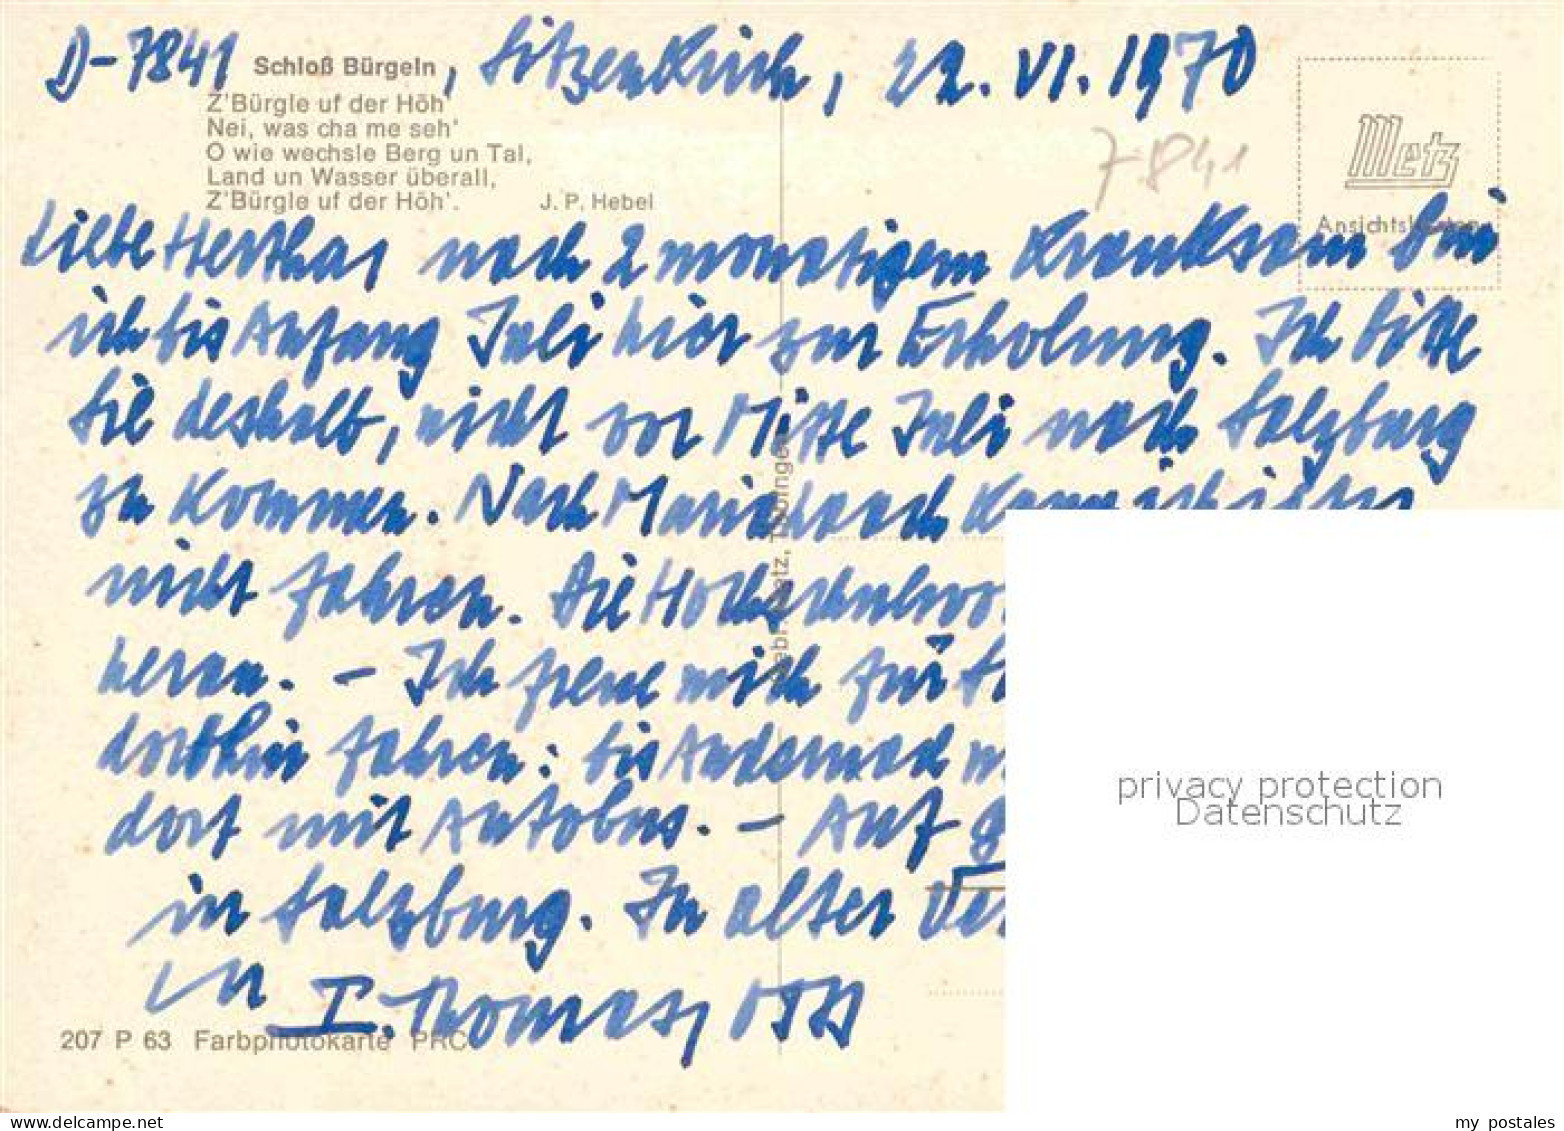 D-7841 Schloß Bürgeln, Sitzenkirch, 22. VI. 1970
Z'Bürgle uf der Höh'
Nei, was cha me seh'
O wie wechsle Berg un Tal,
Land un Wasser überall,
Z'Bürgle uf der Höh'.
J. P. Hebel
7841
Metz
Ansichtskarten
Liebe nach 2 monatigem Kranksein bin
ich bis Anfang Juli hier zur Erholung. Ich bitte
Sie deshalb, nicht vor Mitte Juli nach Salzburg
zu kommen. Nach Maria Laach kann ich
nicht fahren. Die Hochschulwo
heran. - Ich freue mich für Si
dorthin fahren: bis Andernach
dort mit Autobus. - Auf
in Salzburg. In alter Ver
Ihr
P. Thomas, OSB
Gebr. Metz, Tübingen
207 P 63 Farbphotokarte PRC
privacy protection
Datenschutz
my postales